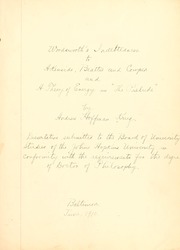 Wordsworth's Indebtedness
to
Akenside, Beattie and Cowper
and
A Theory of Energy in "The Prelude"
by
Hoffman
Dissertation submitted to the Board of University
Studies of the Johns Hopkins University in
conformity with the requirements for the degree
of Doctor of Philosophy.
Baltimore